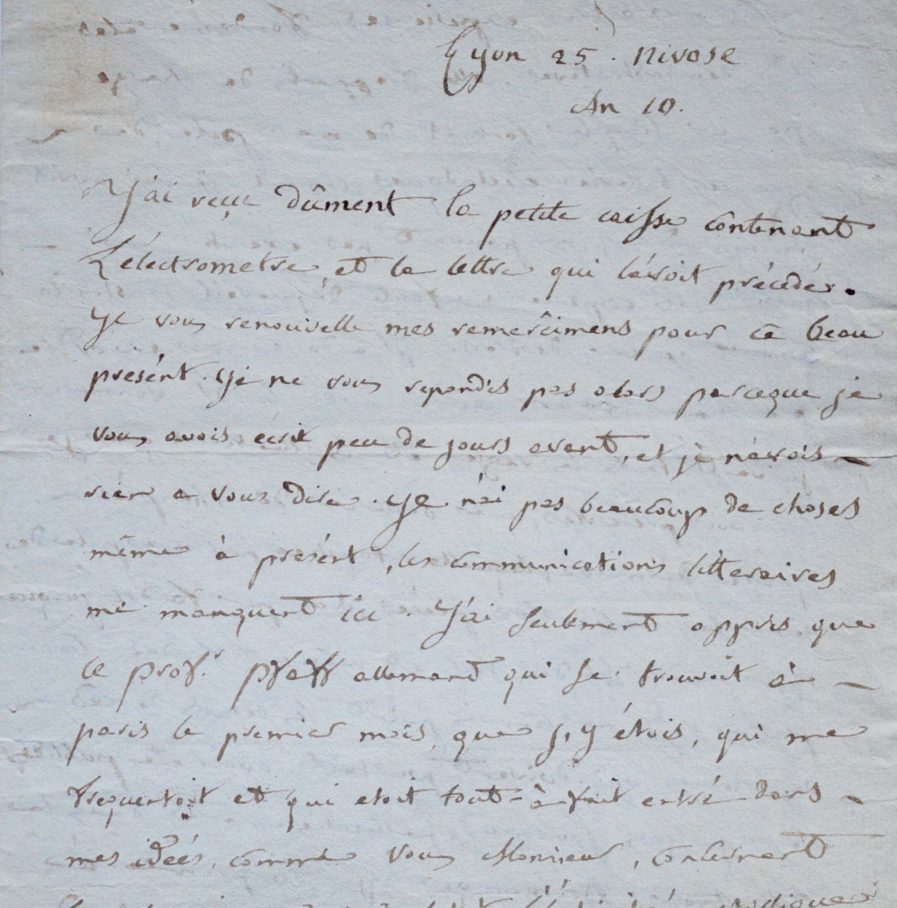 Lyon 25. Nivose
An 10.
J'ai reçu dûment la petite caisse contenant
L'électrometre, et la lettre qui l'avoit précédée.
Je vous renouvelle mes remercîmens pour ce beau
présent. Je ne vous repondis pas alors parceque je
vous avois ecrit peu de jours avant, et je n'avois
rien a vous dire. Je n'ai pas beaucoup de choses
même à présent, les communications litteraires
me manquent ici. J'ai seulement appris que
le prof.r pfaff allemand qui se trouvoit à
paris le premier mois, que j'y étois, qui me
frequentoit et qui etoit tout-à-fait entré dans
mes idées, comme vous Monsieur, concernant